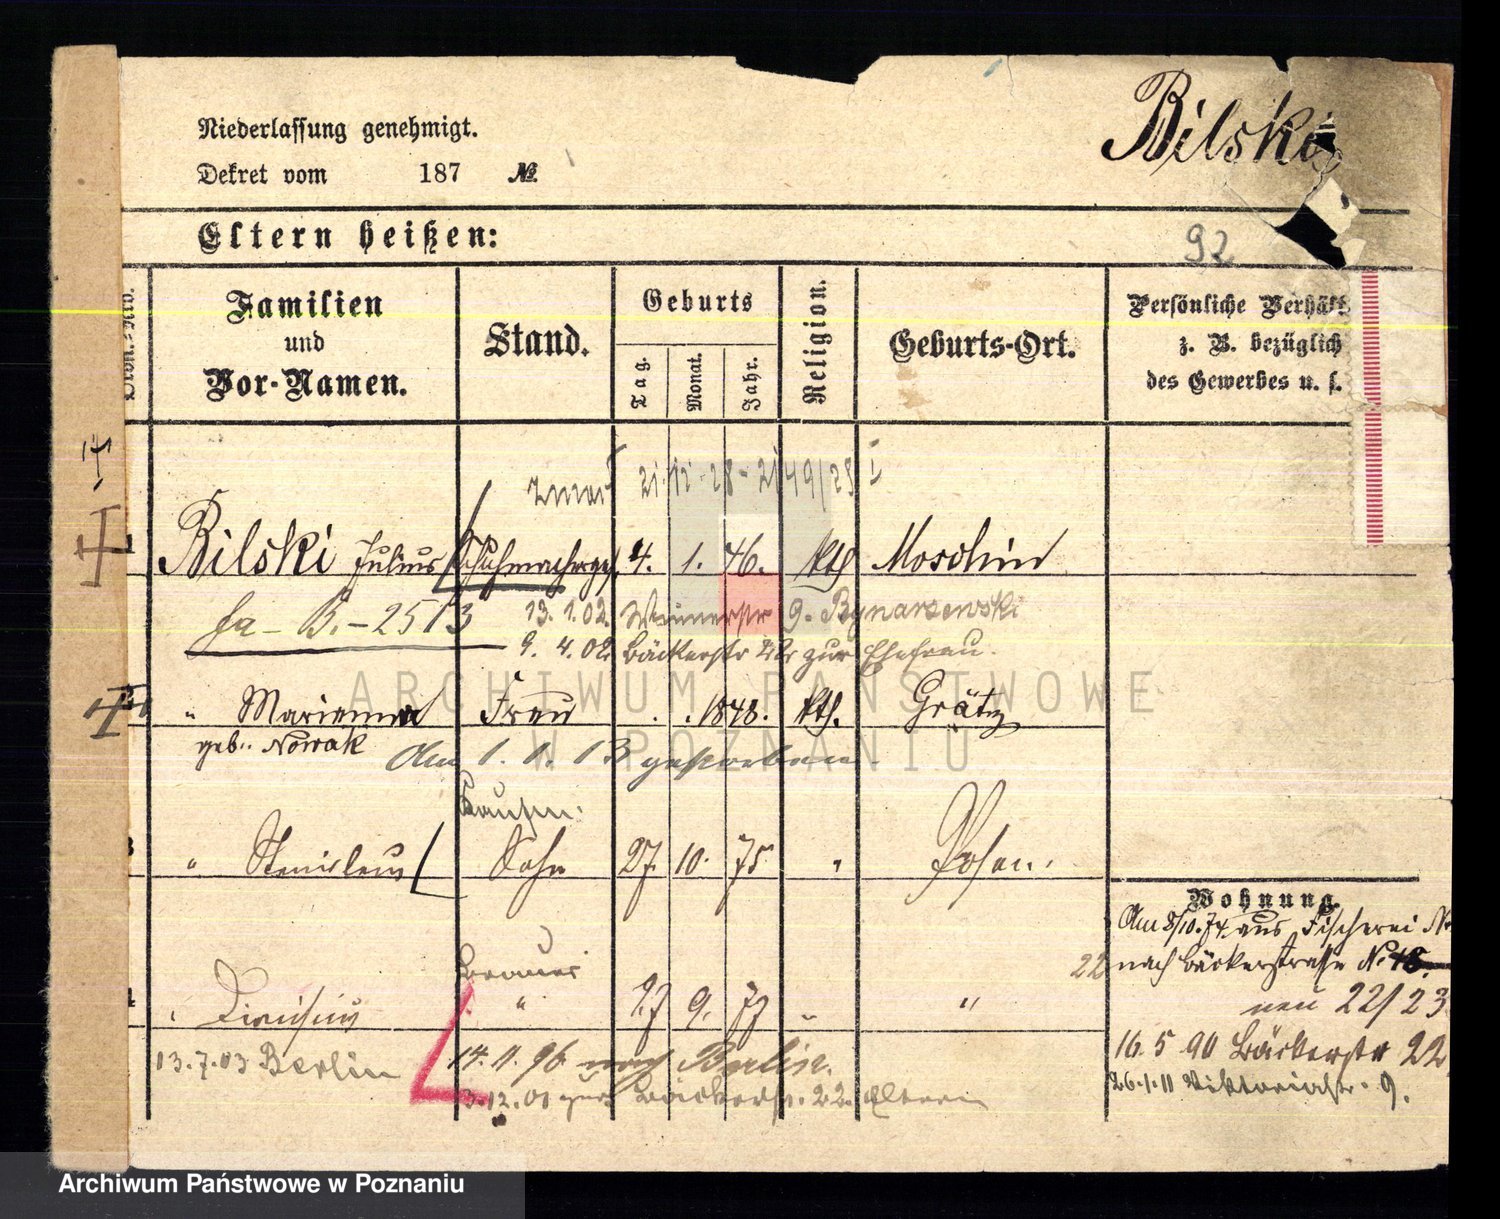 Niederlassung genehmigt.
Dekret vom 187 №
Bilski
Eltern heißen:
92
Familien und Vor-Namen.
Stand.
Geburts
Tag.
Monat.
Jahr.
Religion.
Geburts-Ort.
Persönliche Verhält
z. B. bezüglich
des Gewerbes u. s.
21 12 28 - 2149/28 I
Bilski Julius Schuhmacherges. 4. 1. 46. kth Moschin
fa - B. - 2513
13.1.02. Wienerstr 9. Bynarzewski
9. 4. 02 Bäckerstr 22 zur Ehefrau.
" Marianna Frau . . 1848. kth. Grätz
geb. Nowak
Am 1. 1. 13 gestorben.
Kaufm.
" Stanislaus Sohn 27. 10. 75 " Posen.
Brauer
" Dionisius " 27 9. 77 " "
13.7.03 Berlin
14. 11. 96 nach Berlin.
3.12.01 zur. Bäckerstr. 22. Eltern
Wohnung.
Am 8/10.74 aus Fischerei No
22 nach Bäckerstraße No 18.
neu 22/23
16. 5 90 Bäckerstr 22
26.1.11 Viktoriastr. 9.
ARCHIWUM PAŃSTWOWE
W POZNANIU
Archiwum Państwowe w Poznaniu